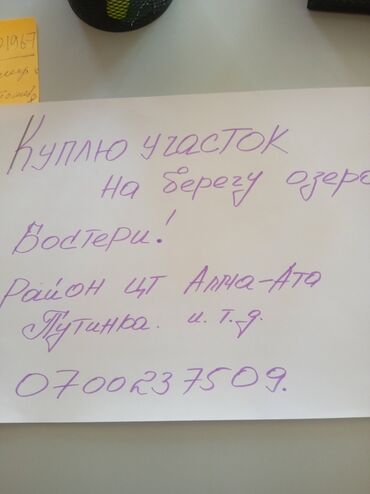 0196-7
Куплю участок
на берегу озер
Бостери!
Район ЦТ Алма-Ата
Путинка. и. т. д.
0700237509.